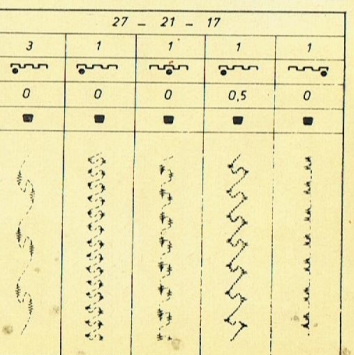 27 – 21 – 17
3 1 1 1 1
0 0 0 0,5 0